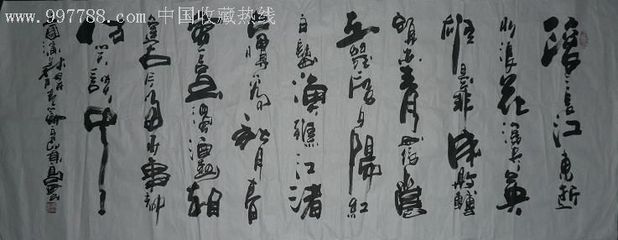 www.997788.com 中国收藏热线
滚滚长江東逝
水浪花淘尽英
雄是非成敗轉
頭空青山依舊
在几度夕陽紅
白髮漁樵江渚
上慣看秋月春
風一壶濁酒喜相
逢古今多少事都
付笑谈中